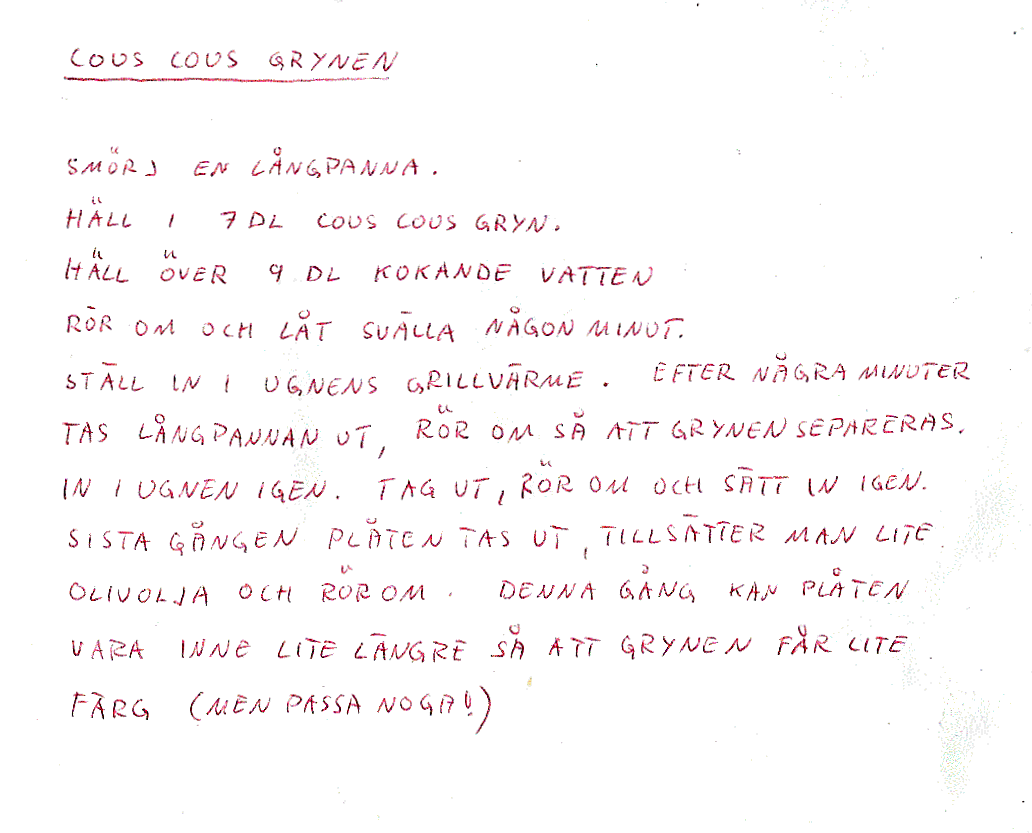 COUS COUS GRYNEN
SMÖRJ EN LÅNGPANNA.
HÄLL I 7 DL COUS COUS GRYN.
HÄLL ÖVER 9 DL KOKANDE VATTEN
RÖR OM OCH LÅT SVÄLLA NÅGON MINUT.
STÄLL IN I UGNENS GRILLVÄRME. EFTER NÅGRA MINUTER
TAS LÅNGPANNAN UT, RÖR OM SÅ ATT GRYNEN SEPARERAS.
IN I UGNEN IGEN. TAG UT, RÖR OM OCH SÄTT IN IGEN.
SISTA GÅNGEN PLÅTEN TAS UT, TILLSÄTTER MAN LITE
OLIVOLJA OCH RÖR OM. DENNA GÅNG KAN PLÅTEN
VARA INNE LITE LÄNGRE SÅ ATT GRYNEN FÅR LITE
FÄRG (MEN PASSA NOGA!)